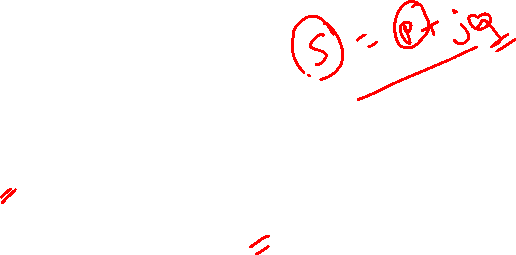 S = P + jQ
=